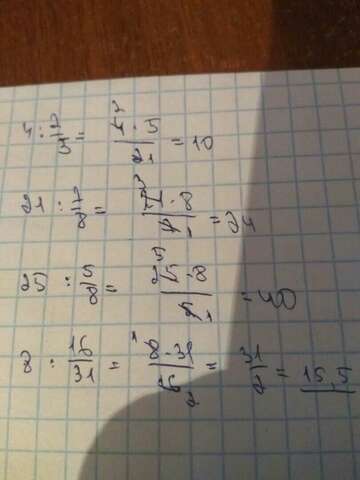 4 : 2/5 = 4 · 5/2 = 10
21 : 7/8 = 21 · 8/7 = 24
25 : 5/8 = 25 · 8/5 = 40
8 : 16/31 = 8 · 31/16 = 31/2 = 15,5